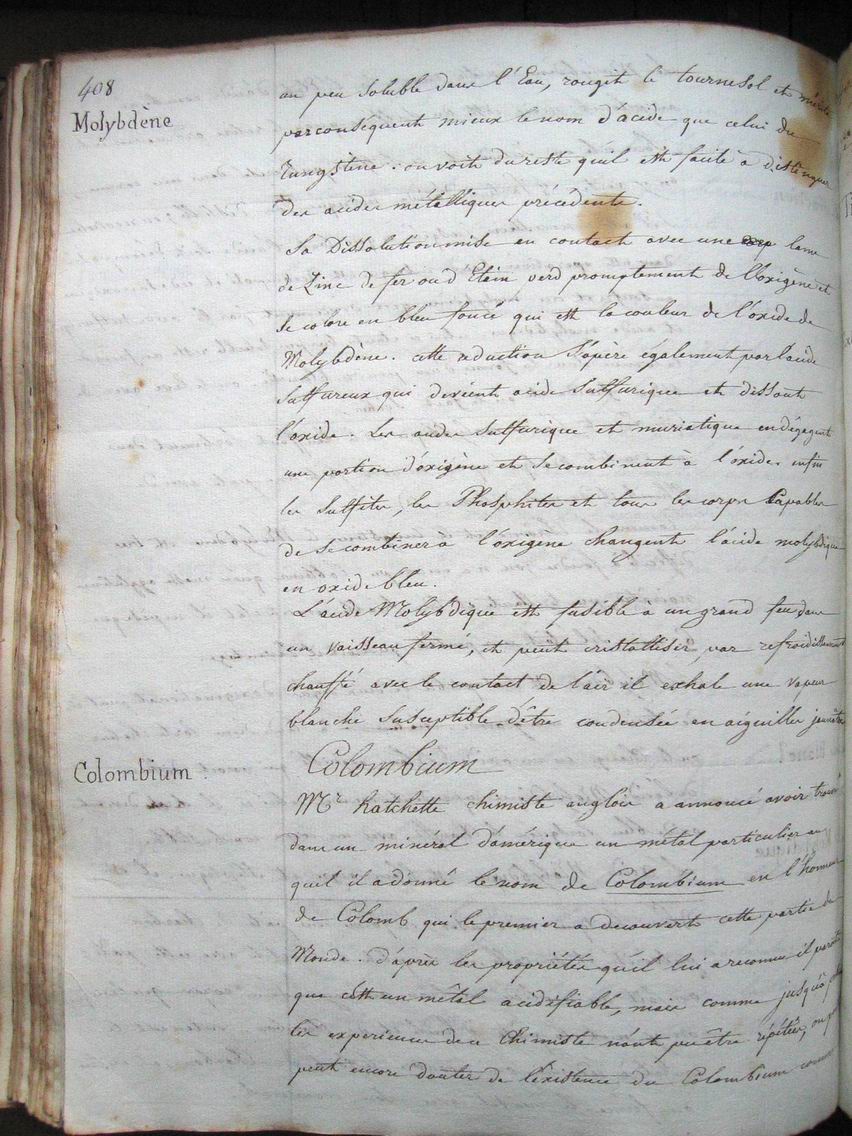 408
Molybdène
un peu soluble dans l'Eau, rougit le tournesol et mérite
parconséquent mieux le nom d'acide que celui du
Tungstène. on voit dureste quil est facile a distinguer
des acides métalliques précédents.
Sa Dissolution mise en contact avec une lame
de Zinc de fer ou d Etain perd promptement de l'oxigène et
se colore en bleu foncé qui est la couleur de l'oxide de
Molybdène. cette réduction S'opère également par l'acide
Sulfureux qui devient acide Sulfurique et dissout
l'oxide. Les acides Sulfurique et muriatique en dégagent
une portion d'oxigène et se combinent à l'oxide, enfin
les Sulfites, les Phosphites et tous les corps Capables
de se combiner a l'oxigène changent l'acide molybdique
en oxide bleu.
L'acide Molybdique est fusible à un grand feu, dans
un vaisseau fermé, et peut cristalliser par refroidissement
chauffé avec le contact de l'air il exhale une vapeur
blanche Susceptible d'être condensée en aiguilles jaunâtres
Colombium
Colombium
Mr hatchette chimiste anglois a annoncé avoir trouvé
dans un minéral d'amérique un métal particulier au
quel il a donné le nom de Colombium en l'honneur
de Colomb qui le premier a decouvert cette partie du
Monde. d'après les propriétés qu'il lui a reconnu il paroit
que c'est un métal acidifiable, mais comme jusqu'à
les experience de ce Chimiste n'ont pu être répétées, on
peut encore douter de l'existence du Colombium comme